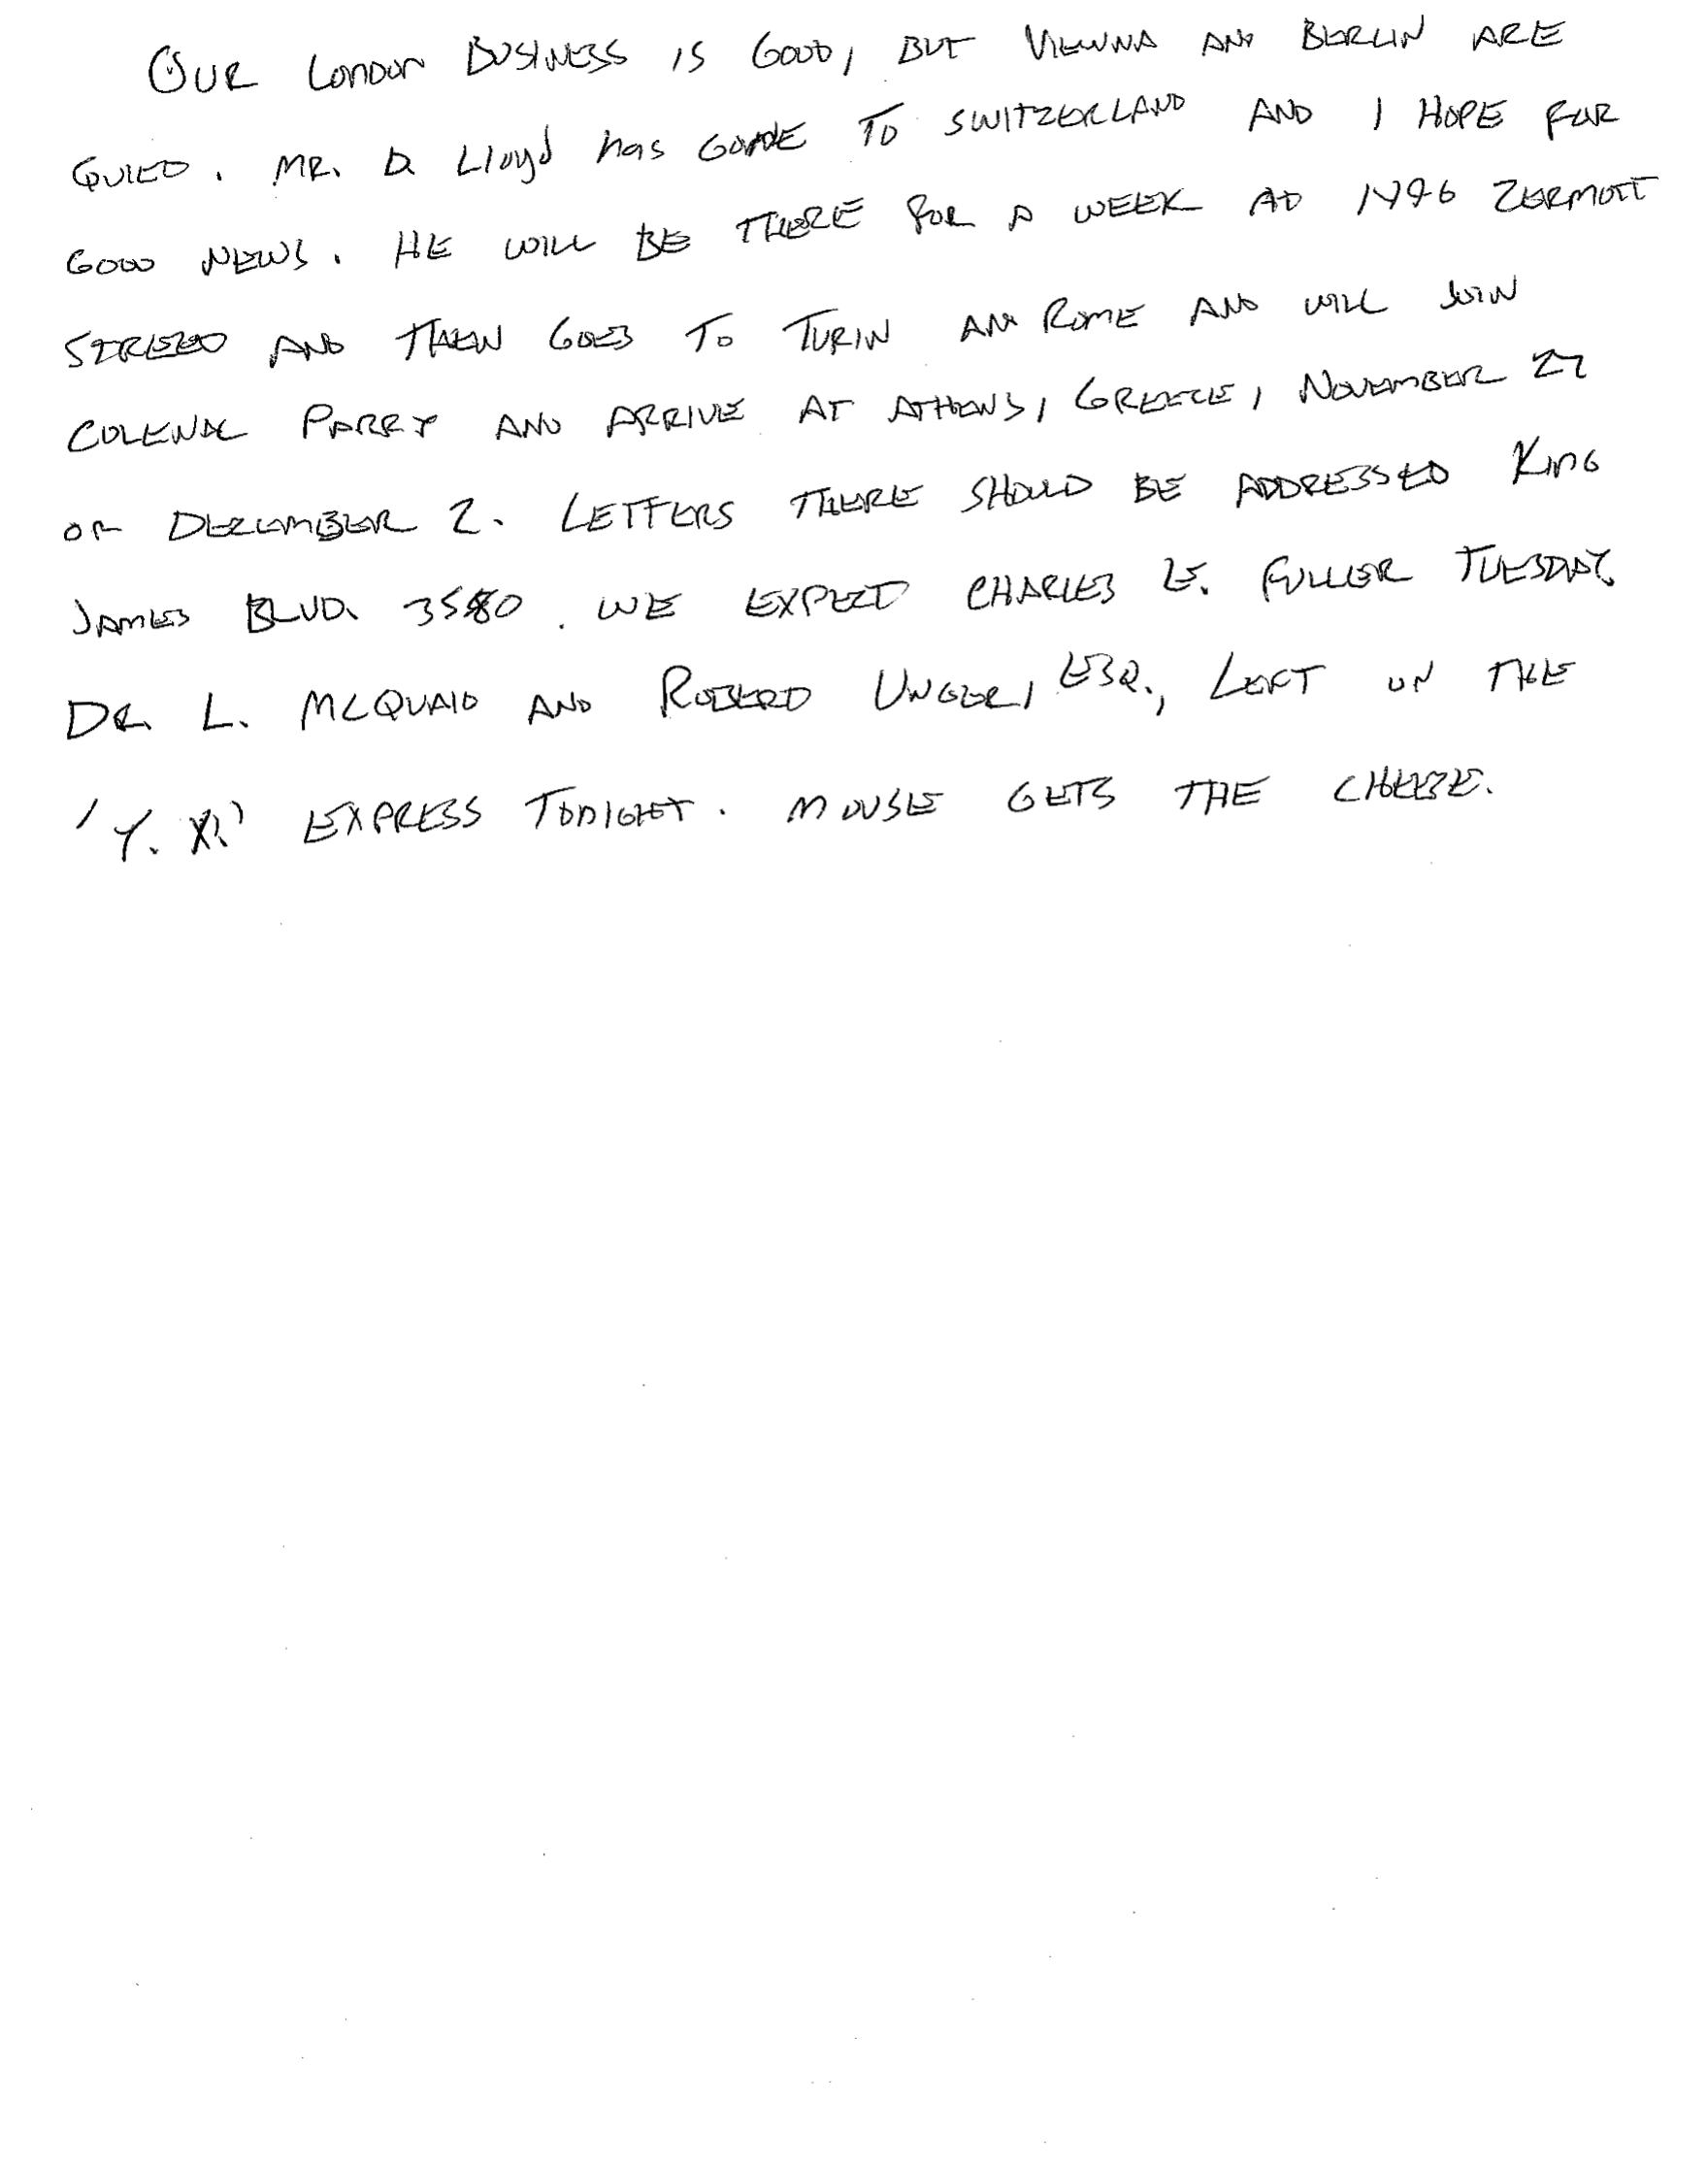 OUR London BUSINESS IS GOOD, BUT VIENNA AND BERLIN ARE
QUIED. MR. D. Lloyd has GONE TO SWITZERLAND AND I HOPE FOR
GOOD NEWS. HE WILL BE THERE FOR A WEEK AD 1496 ZERMOTT
STREED AND THEN GOES TO TURIN AND ROME AND WILL JOIN
COLENAL PARRY AND ARRIVE AT ATHENS, GREECE, NOVEMBER 27
OR DECEMBER 2. LETTERS THERE SHOULD BE ADDRESSED KING
JAMES BLVD. 3580. WE EXPECT CHARLES E. FULLER TUESDAY.
DR. L. MCQUAID AND ROBERD UNGER, ESQ., LEFT ON THE
'Y.X.' EXPRESS TONIGHT. MOUSE GETS THE CHEESE.